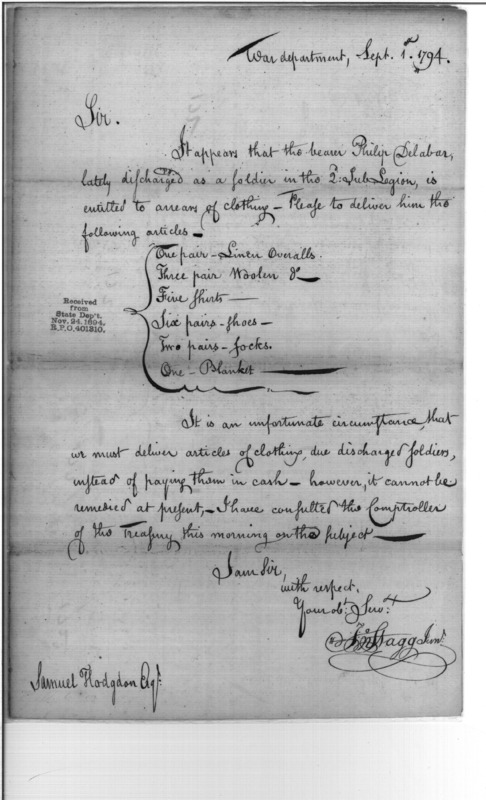 War department, Sept. 1st 1794.
Sir.
It appears that the bearer Philip Delabar,
lately discharged as a soldier in the 2d. Sub Legion, is
entitled to arrears of clothing – Please to deliver him the
following articles –
One pair – Linen Overalls.
Three pair Woolen do –
Five Shirts –
Six pairs – shoes –
Two pairs – socks.
One – Blanket –
Received
from
State Dep't.
Nov. 24, 1894.
R.P.O. 401310.
It is an unfortunate circumstance that
we must deliver articles of clothing, due discharged soldiers,
instead of paying them in cash – however, it cannot be
remedied at present, – I have consulted the Comptroller
of the Treasury this morning on the subject –
I am Sir,
with respect,
Your obt. Servt.
Jno Stagg Junr.
Samuel Hodgdon Esqr.